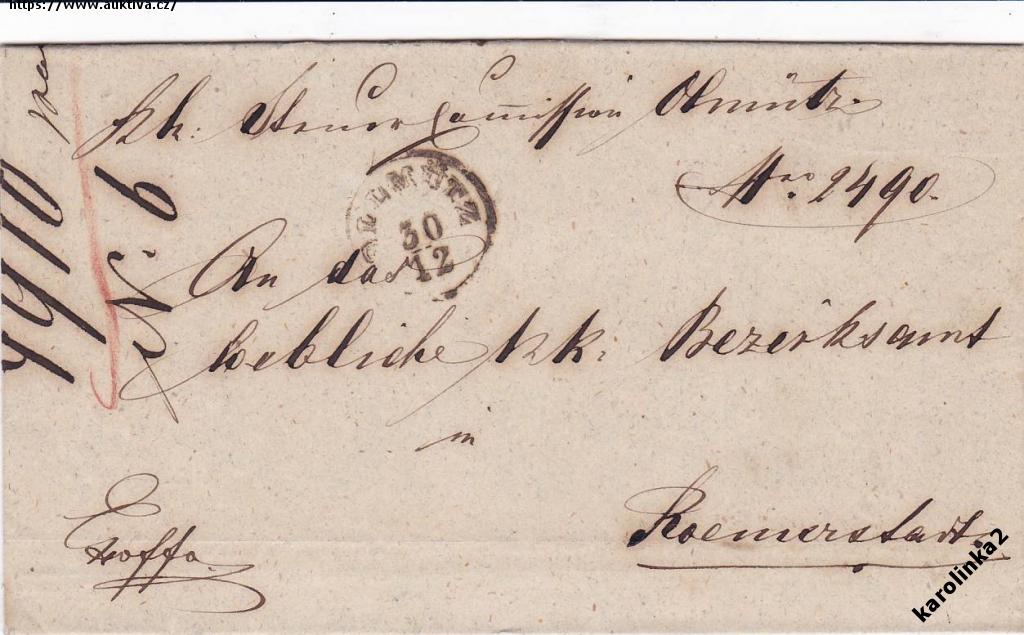 https://www.auktiva.cz/
kk. Steuer Commission Olmütz.
Nro 2490.
OLLMÜTZ
30
12
N. 6
An das
Loebliche kk. Bezirksamt
in
Roemerstadt.
Exoffo
karolinka2